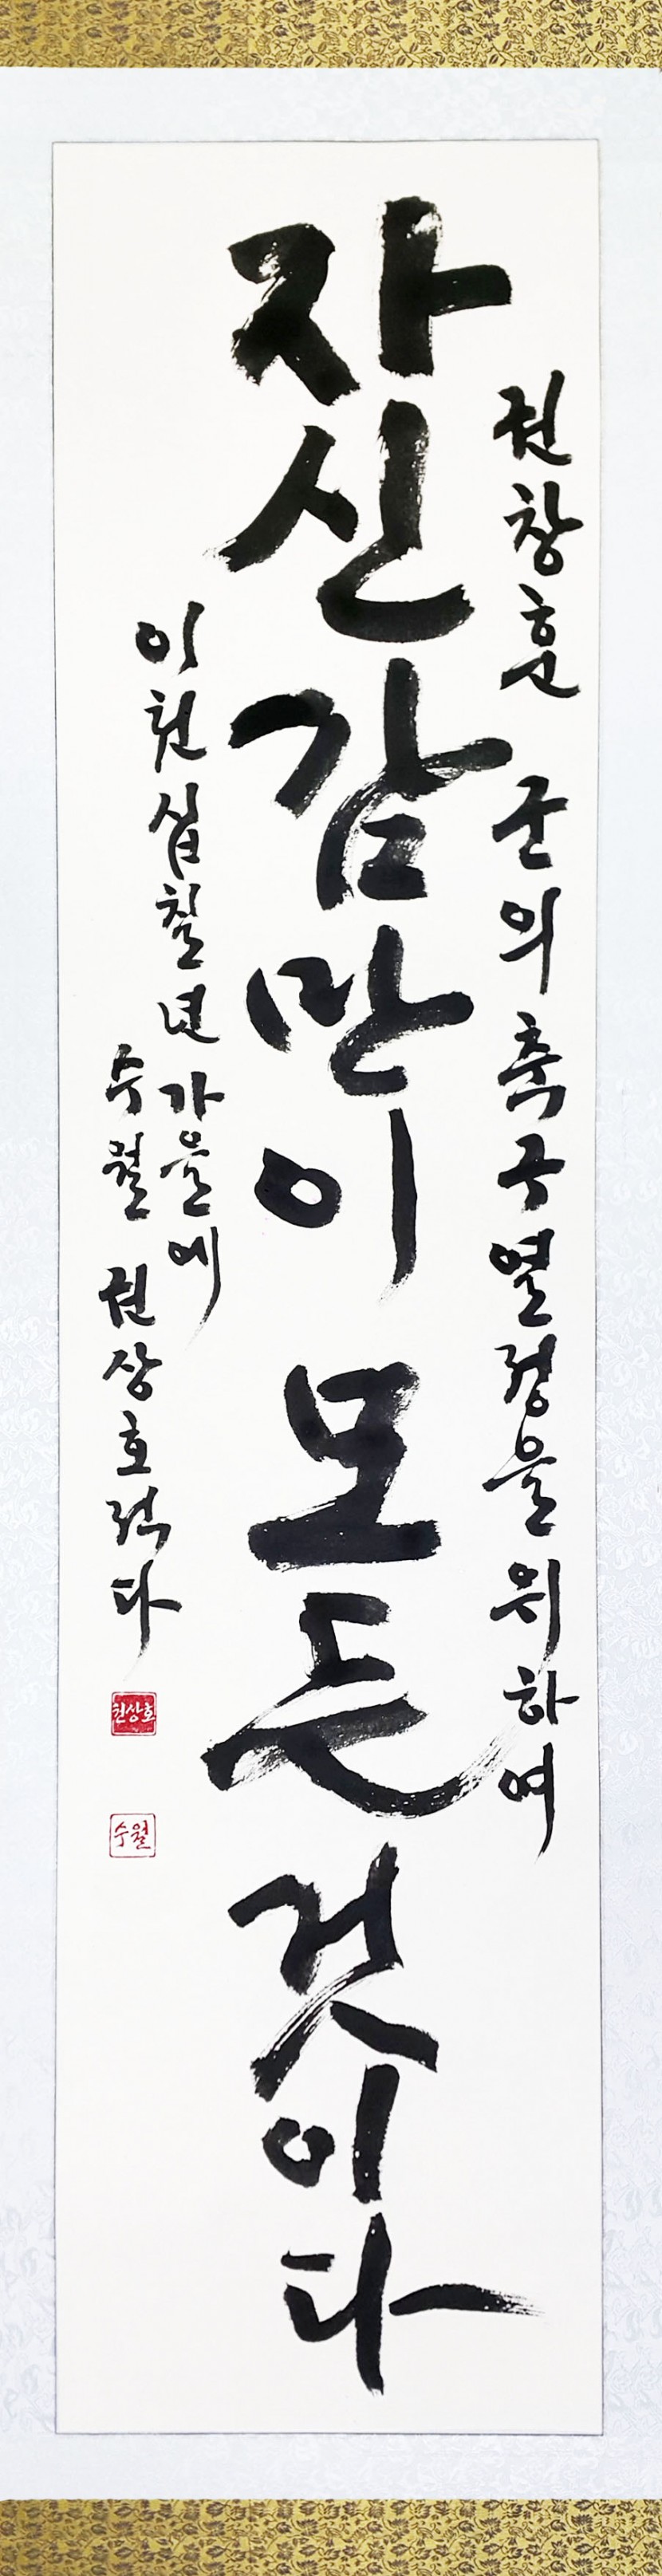 권창훈 군의 축구열정을 위하여
자신감만이 모든 것이다
이천십칠년 가을에
수월 권상호 적다
권상호
수월